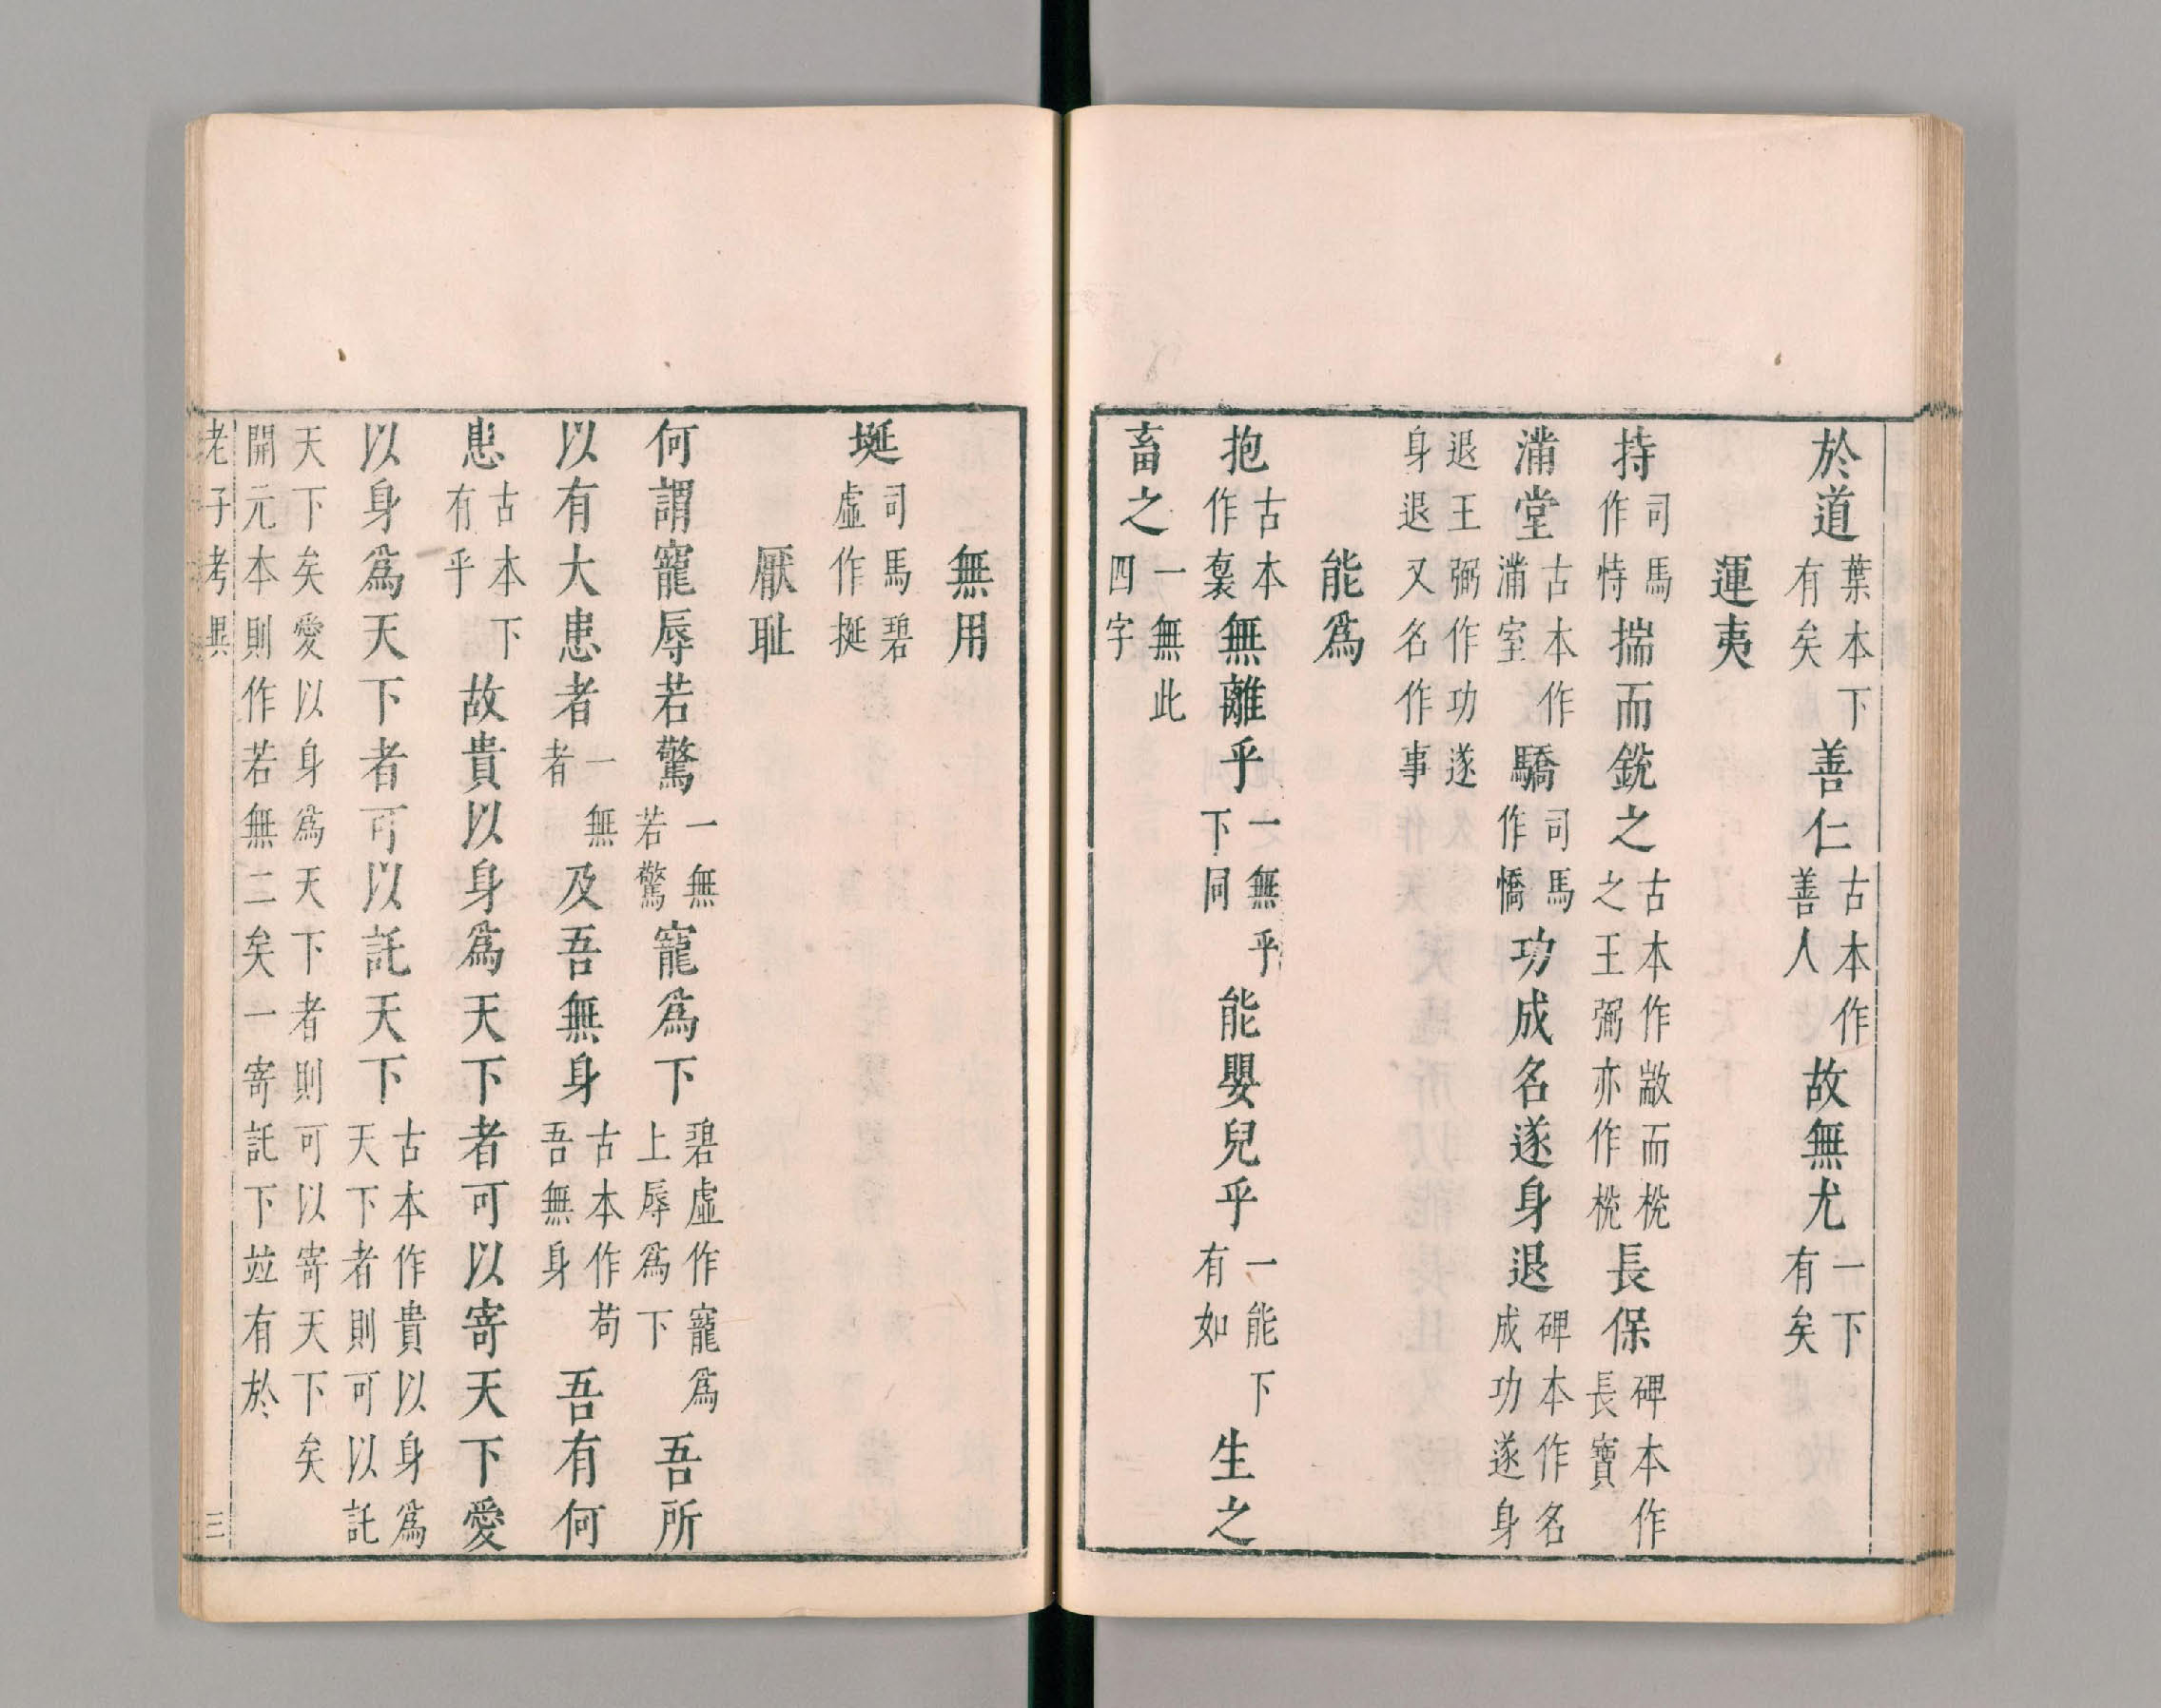 於道葉本下有矣善仁古本作善人故無尤一下有矣
運夷
持司馬作恃揣而銳之古本作敯而梲之王弼亦作梲長保碑本作長寶
滿堂古本作滿室驕司馬作憍功成名遂身退碑本作名成功遂身
退王弼作功遂身退又名作事
能爲
抱古本作褒無離乎一無乎下同能嬰兒乎一能下有如生之
畜之一無此四字
無用
埏司馬碧虛作挻
厭耻
何謂寵辱若驚一無若驚寵爲下碧虛作寵爲上辱爲下吾所
以有大患者一無者及吾無身古本作苟吾無身吾有何
患古本下有乎故貴以身爲天下者可以寄天下愛
以身爲天下者可以託天下古本作貴以身爲天下者則可以託
天下矣愛以身爲天下者則可以寄天下矣
開元本則作若無二矣一寄託下竝有於
老子考異
三